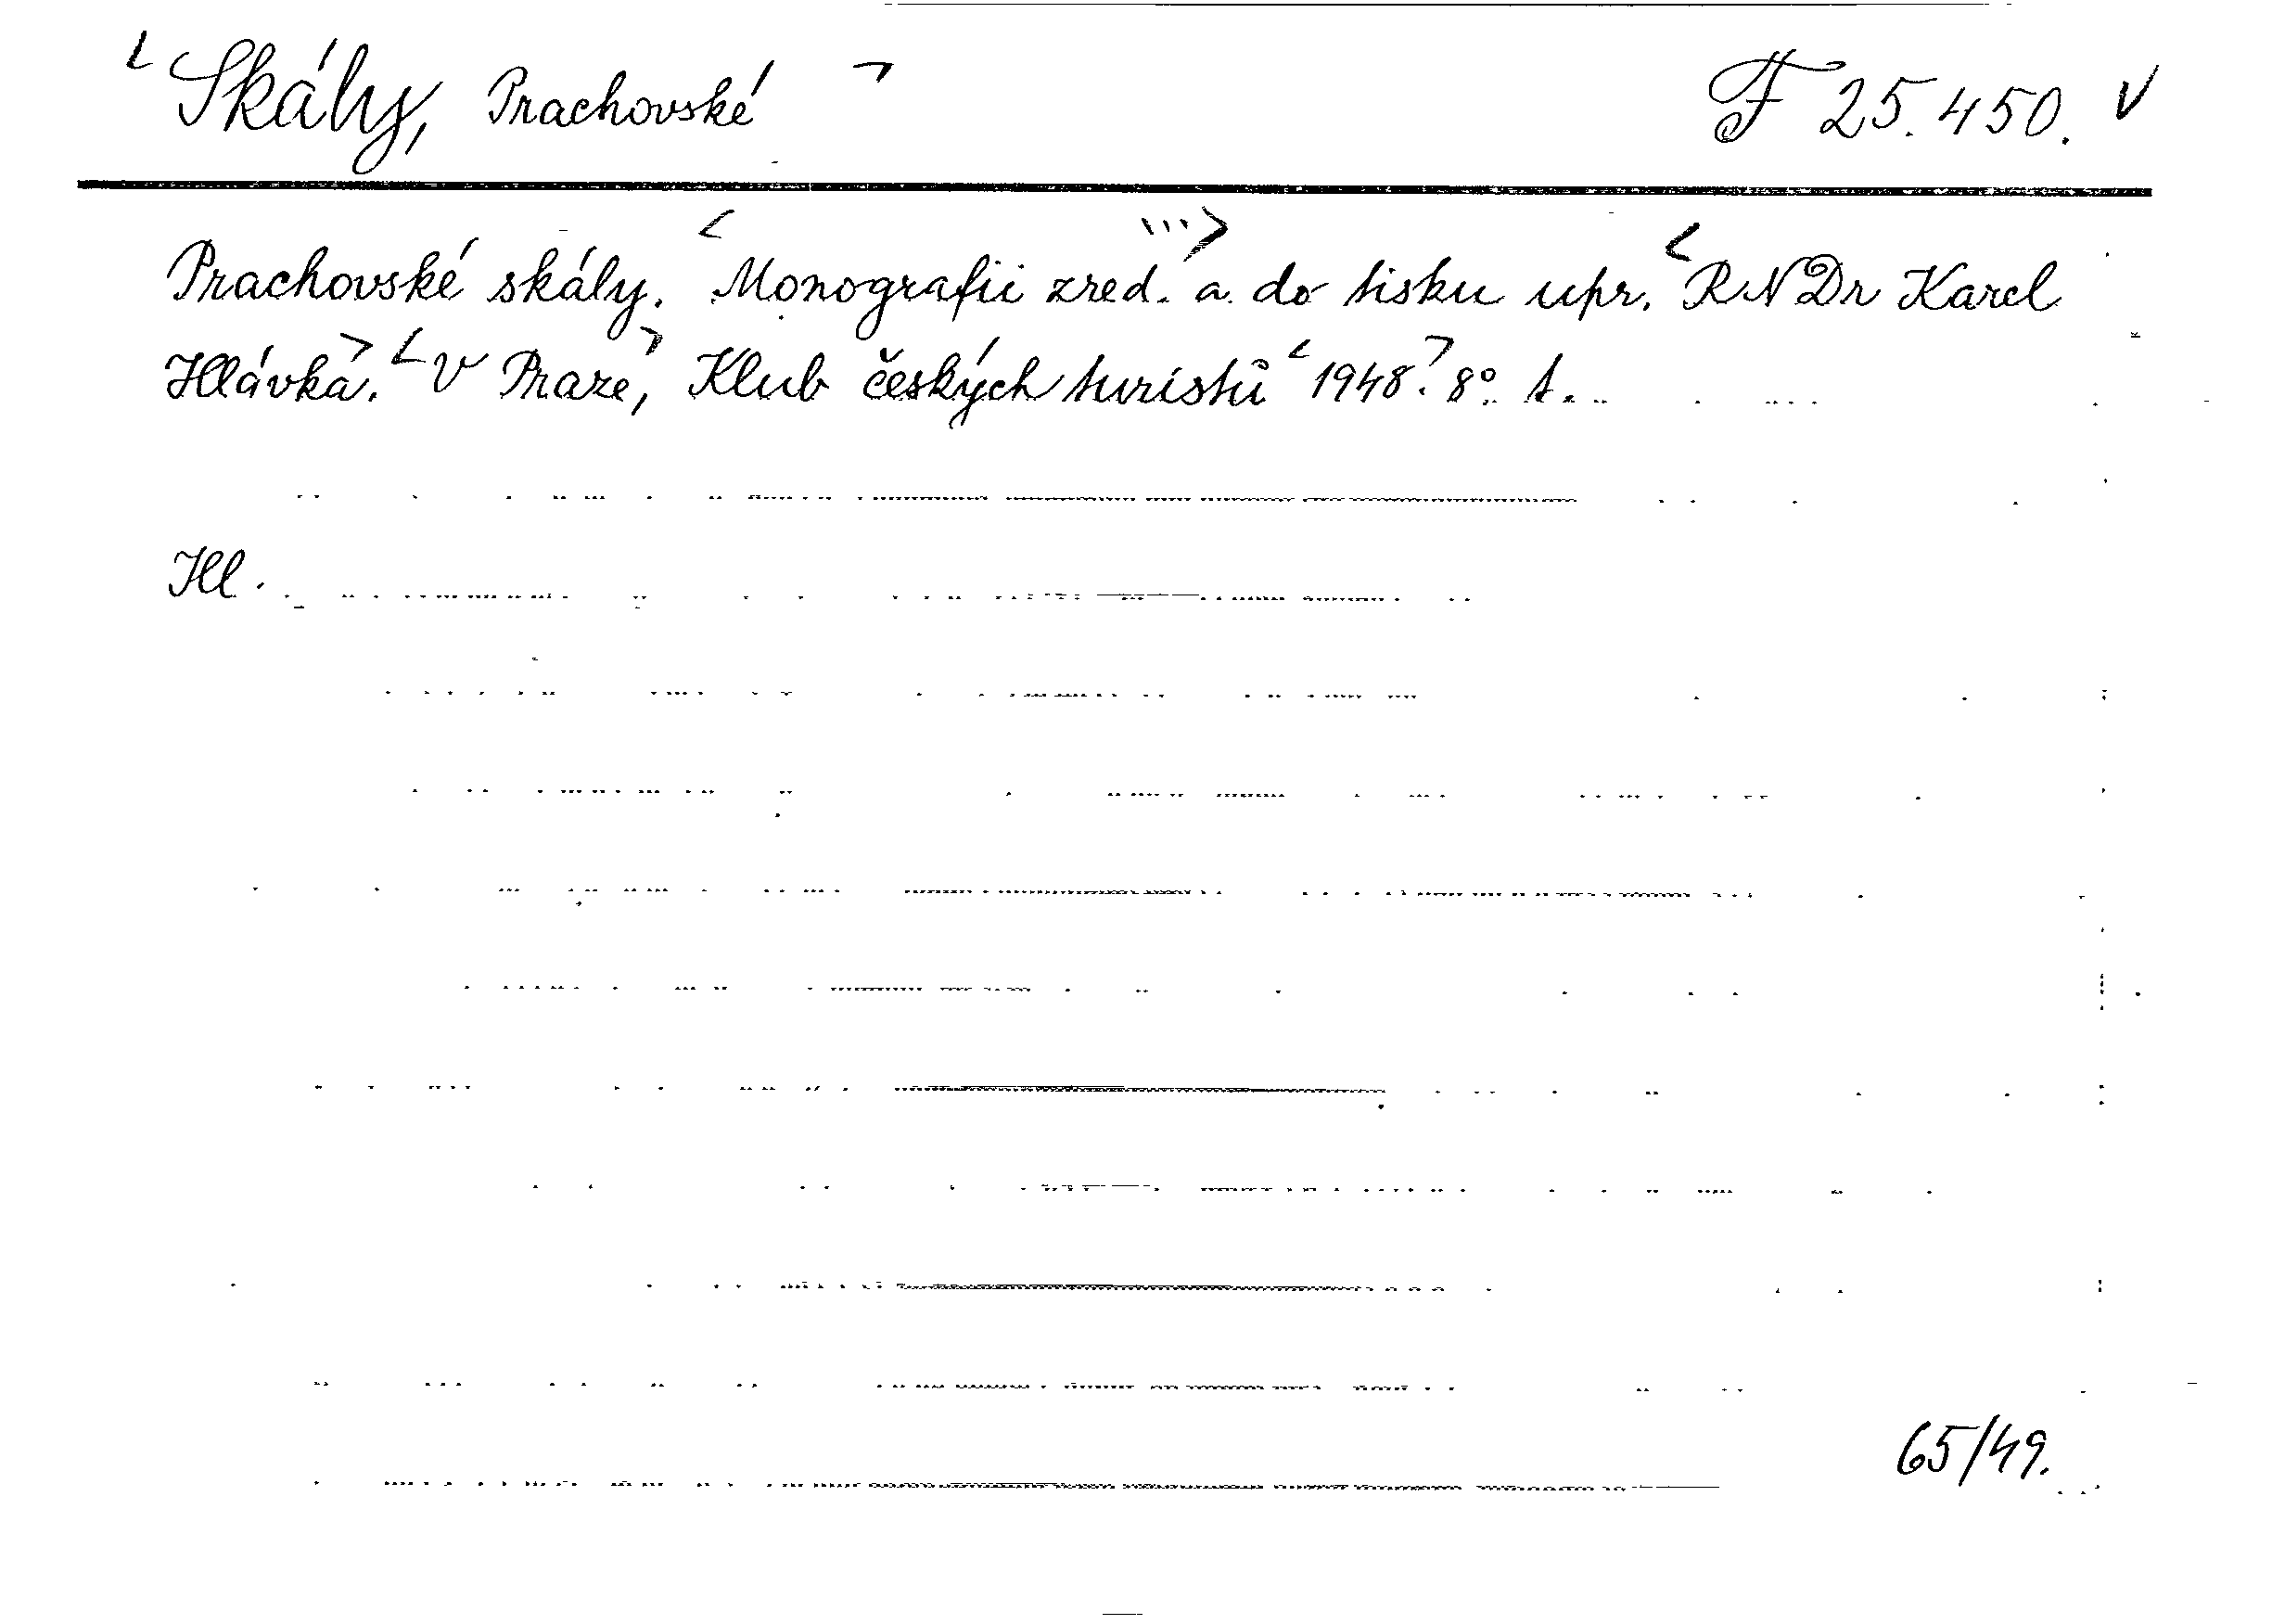 Skály, Prachovské F 25.450. v
Prachovské skály. Monografii zred. a do tisku upr. RNDr Karel
Hlávka. V Praze, Klub českých turistů 1948. 8°. t.
Hl.
65/49.